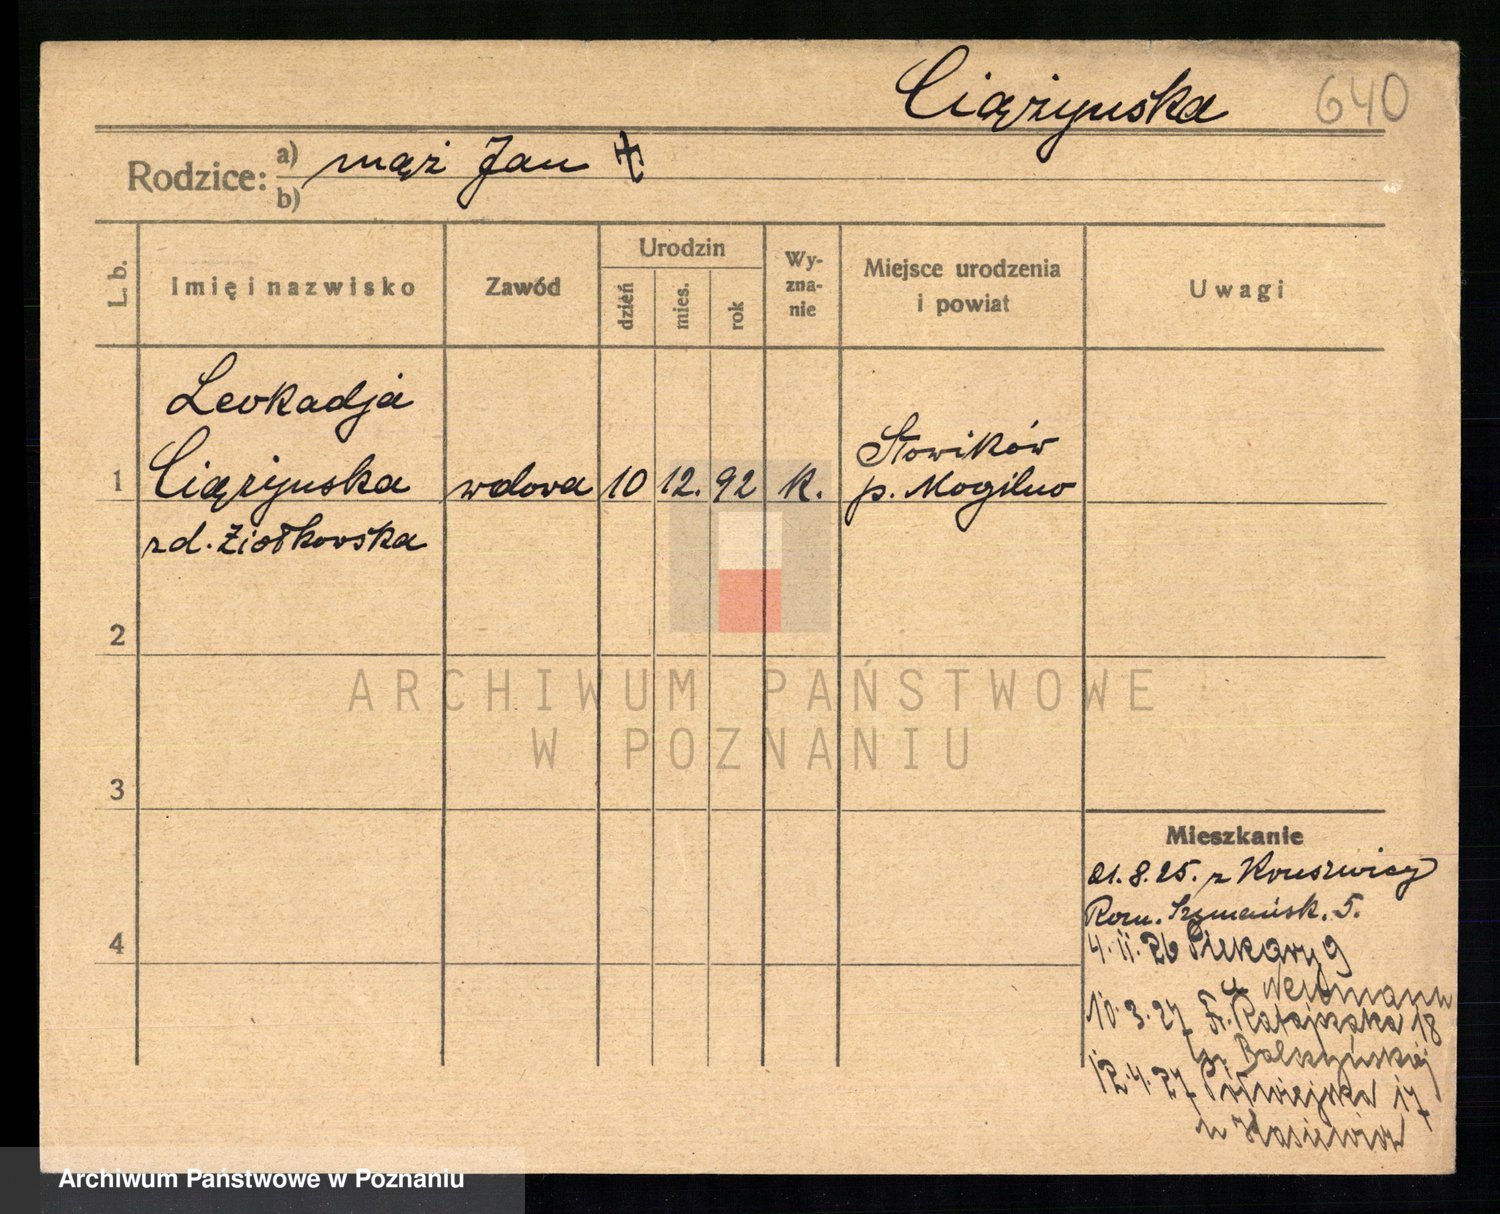 Ciążyńska 640
Rodzice: a) mąż Jan ‡
b)
L. b. Imię i nazwisko Zawód Urodzin dzień mies. rok Wy-zna-nie Miejsce urodzenia i powiat Uwagi
Leokadja
1 Ciążyńska wdowa 10 12. 92 k. Słowików
p. Mogilno
zd. Ziółkowska
2
3
4
Mieszkanie
21.8.25. z Kruszwicy
Rom. Szymańsk. 5.
4.11.26 Piekary 9
u Neumann
10.3.27 Fr. Ratajczaka 18
u Balszyńskiej
12.4.27 Półwiejska 17
u
ARCHIWUM PAŃSTWOWE
W POZNANIU
Archiwum Państwowe w Poznaniu